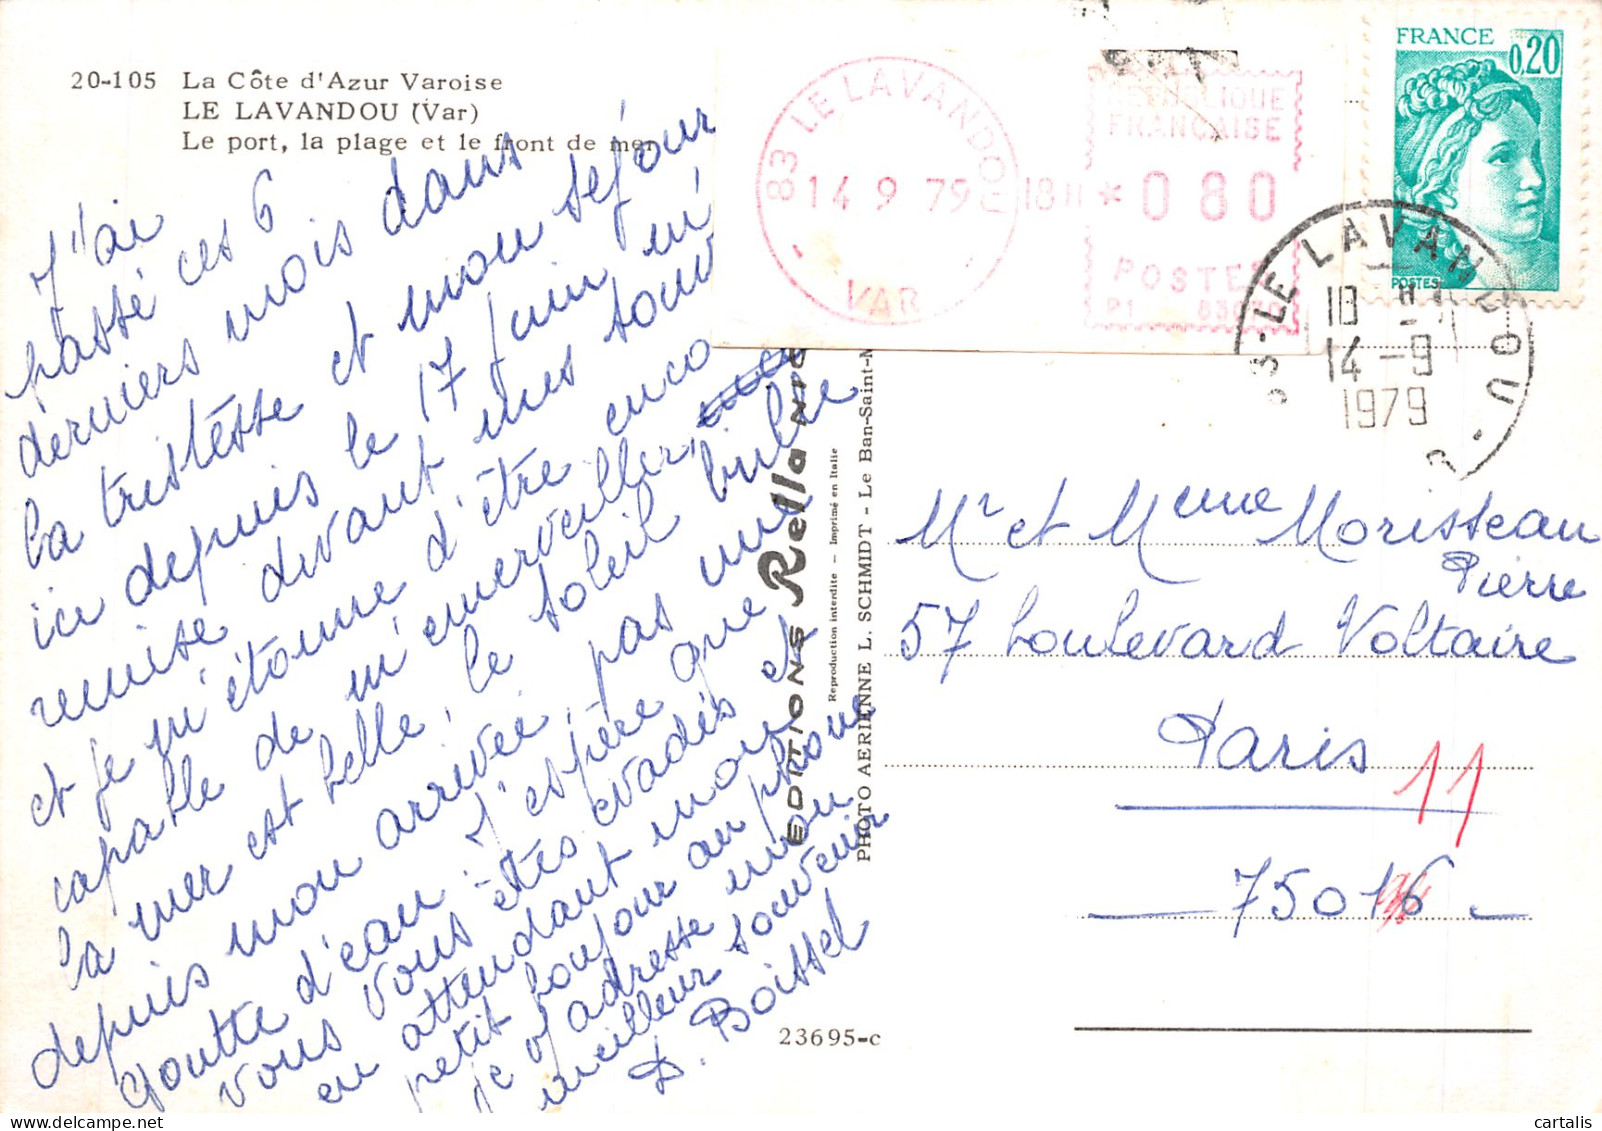 20-105 La Côte d'Azur Varoise
LE LAVANDOU (Var)
Le port, la plage et le front de mer
J'ai
passé ces 6
derniers mois dans
la tristesse et mon séjour
ici depuis le 17 juin m'
remise devant mes
et je m'étonne d'être
capable de m'émerveiller,
la mer est belle, le soleil brille
depuis mon arrivée, pas une
goutte d'eau. J'espère que
vous vous êtes évadés et
en attendant mon
petit bonjour au
je adresse mon
meilleur souvenir
D. Boissel
EDITIONS Rella
Reproduction interdite — Imprimé en Italie
PHOTO AERIENNE L. SCHMIDT - Le Ban-Saint-M
23695-c
83 LE LAVANDOU
14 9 79 18H
VAR
REPUBLIQUE
FRANÇAISE
* 0 80
POSTES
P1
FRANCE
0,20
POSTES
83-LE LAVANDOU
18 H
14-9
1979
Mr et Mme Morisseau
Pierre
57 boulevard Voltaire
Paris 11
75016
cartalis
delcampe.net